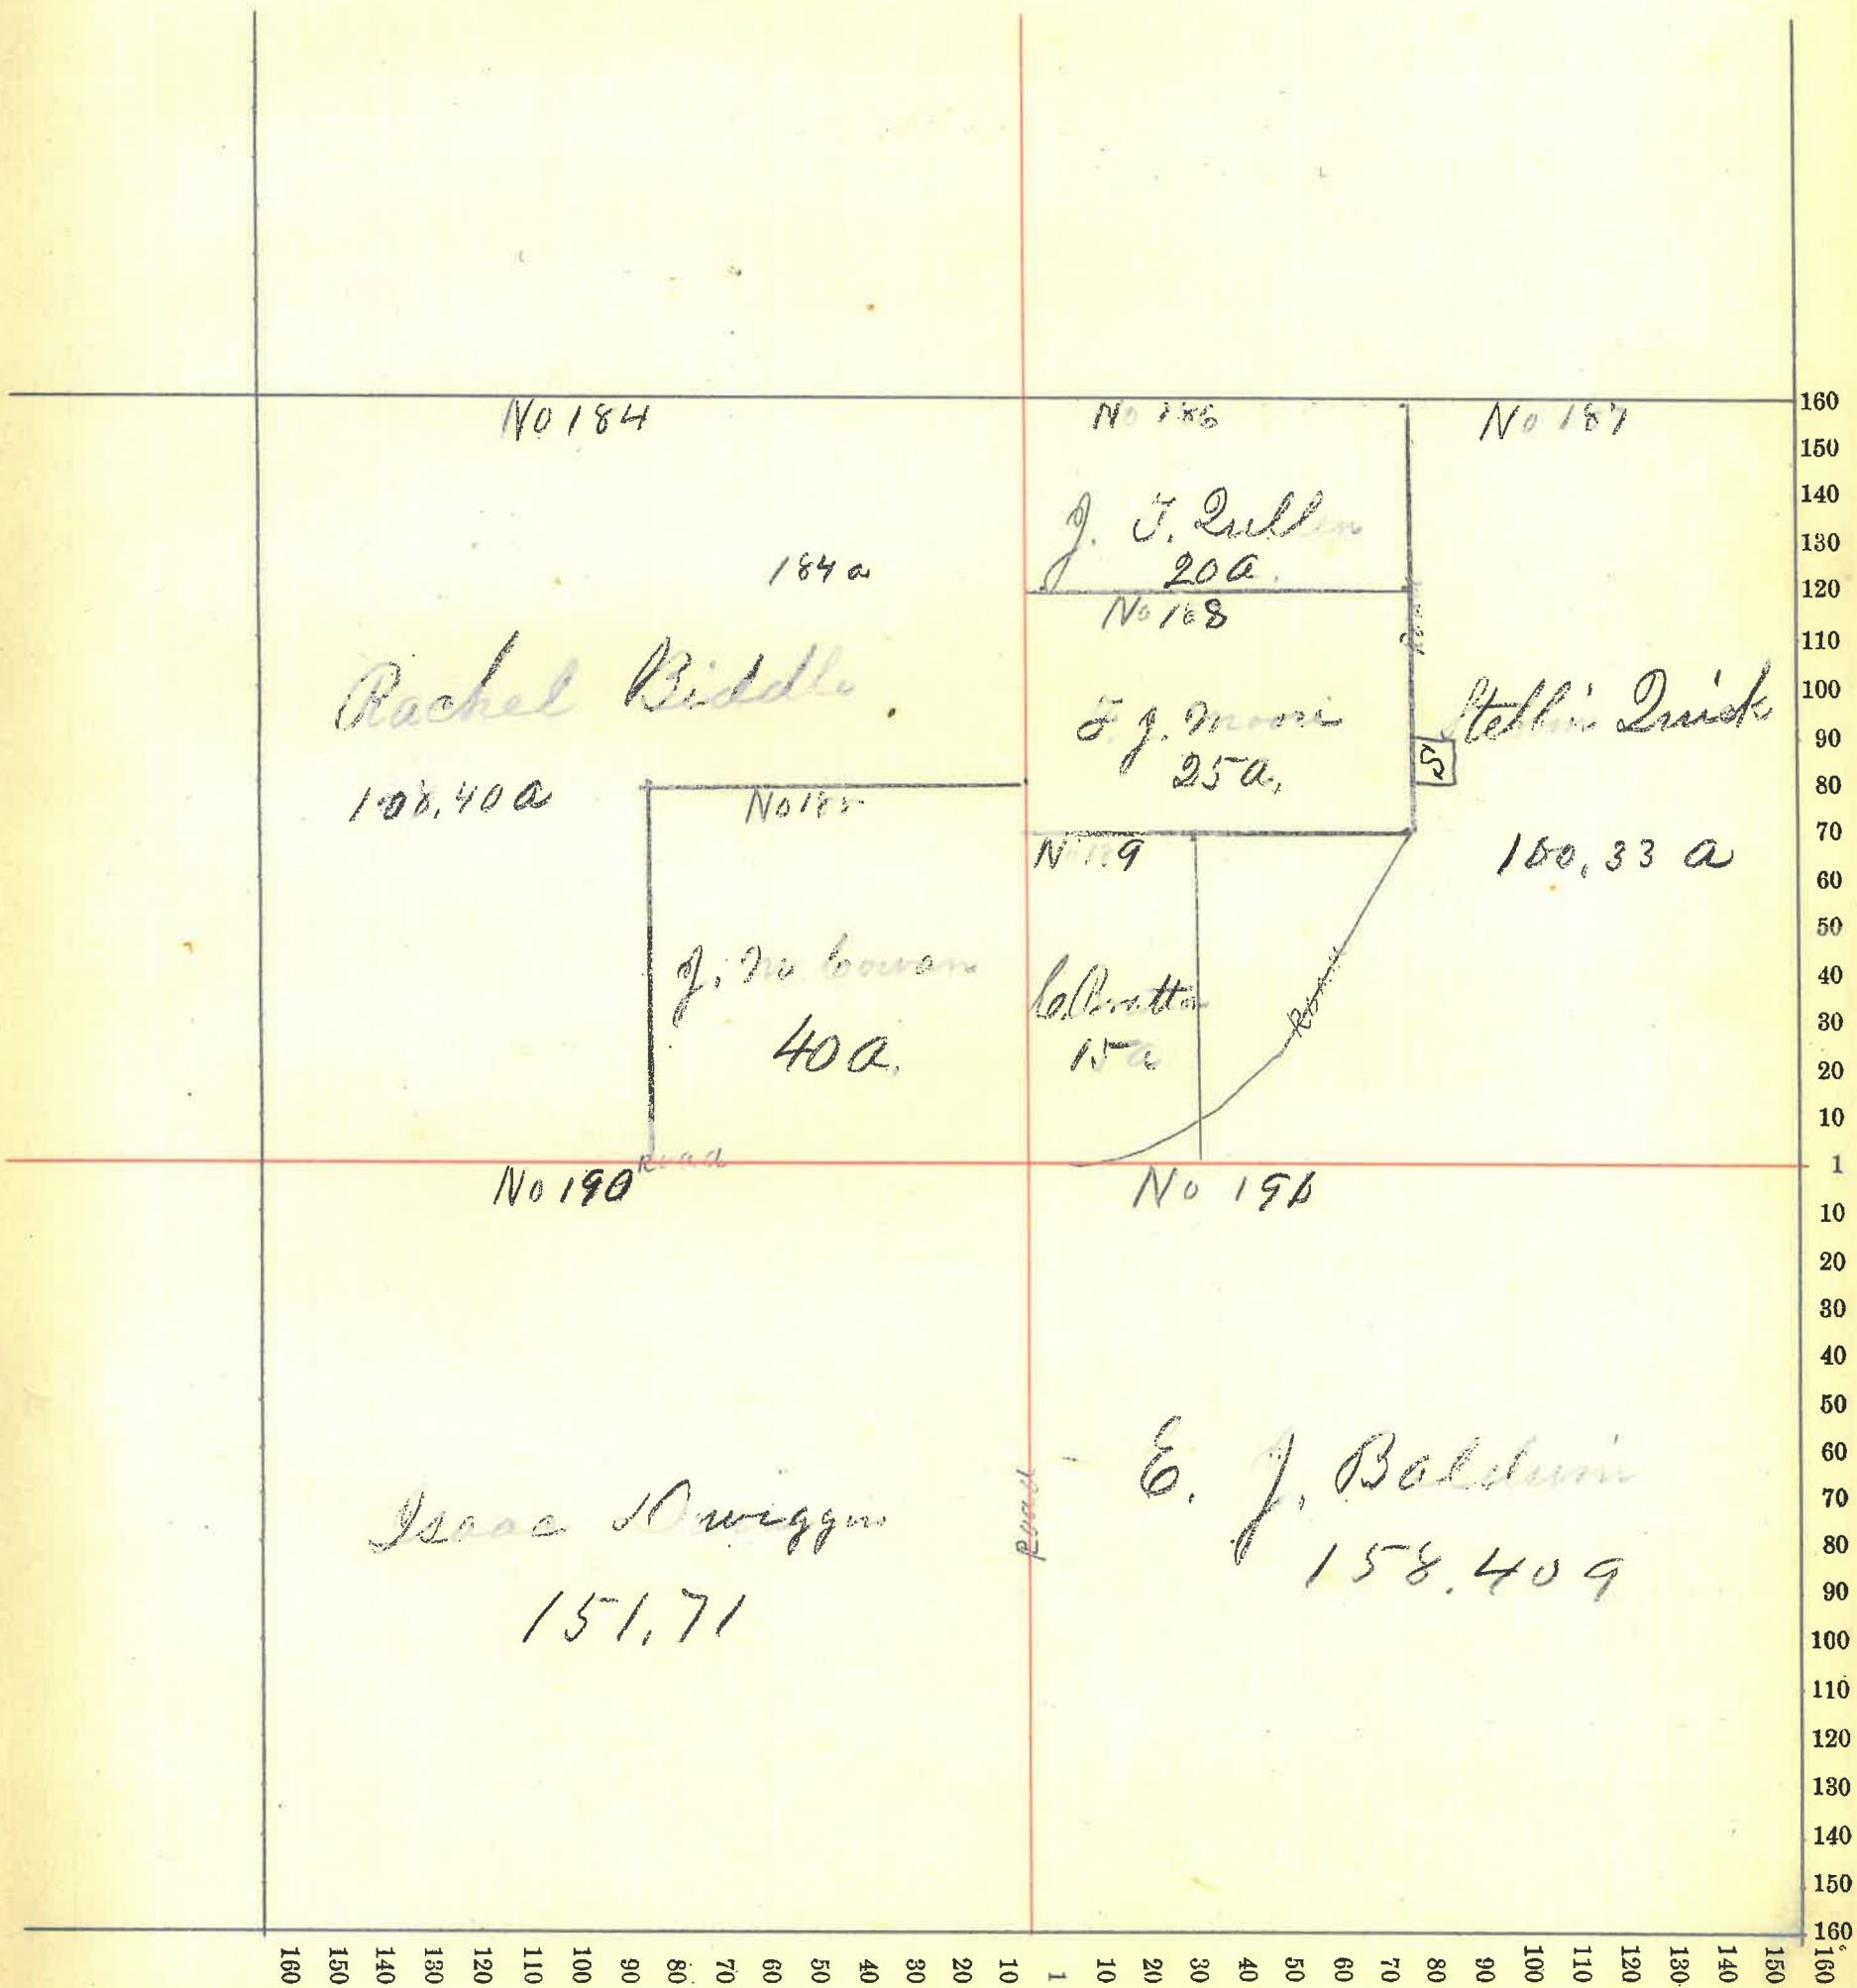 No 184
No 186
No 187
J. F. Quillen
20 a.
184 a
No 188
Rachel Biddle
F. J. Moore
25 a.
Stella Quick
S
108.40 a
No 185
100.33 a
J. M. Cowan
40 a.
15 a
Road
Road
No 190
No 191
E. J. Baldwin
158.40 a
Isaac Dwiggins
151.71
Road
160
150
140
130
120
110
100
90
80
70
60
50
40
30
20
10
1
10
20
30
40
50
60
70
80
90
100
110
120
130
140
150
160
160 150 140 130 120 110 100 90 80 70 60 50 40 30 20 10 1 10 20 30 40 50 60 70 80 90 100 110 120 130 140 150 160